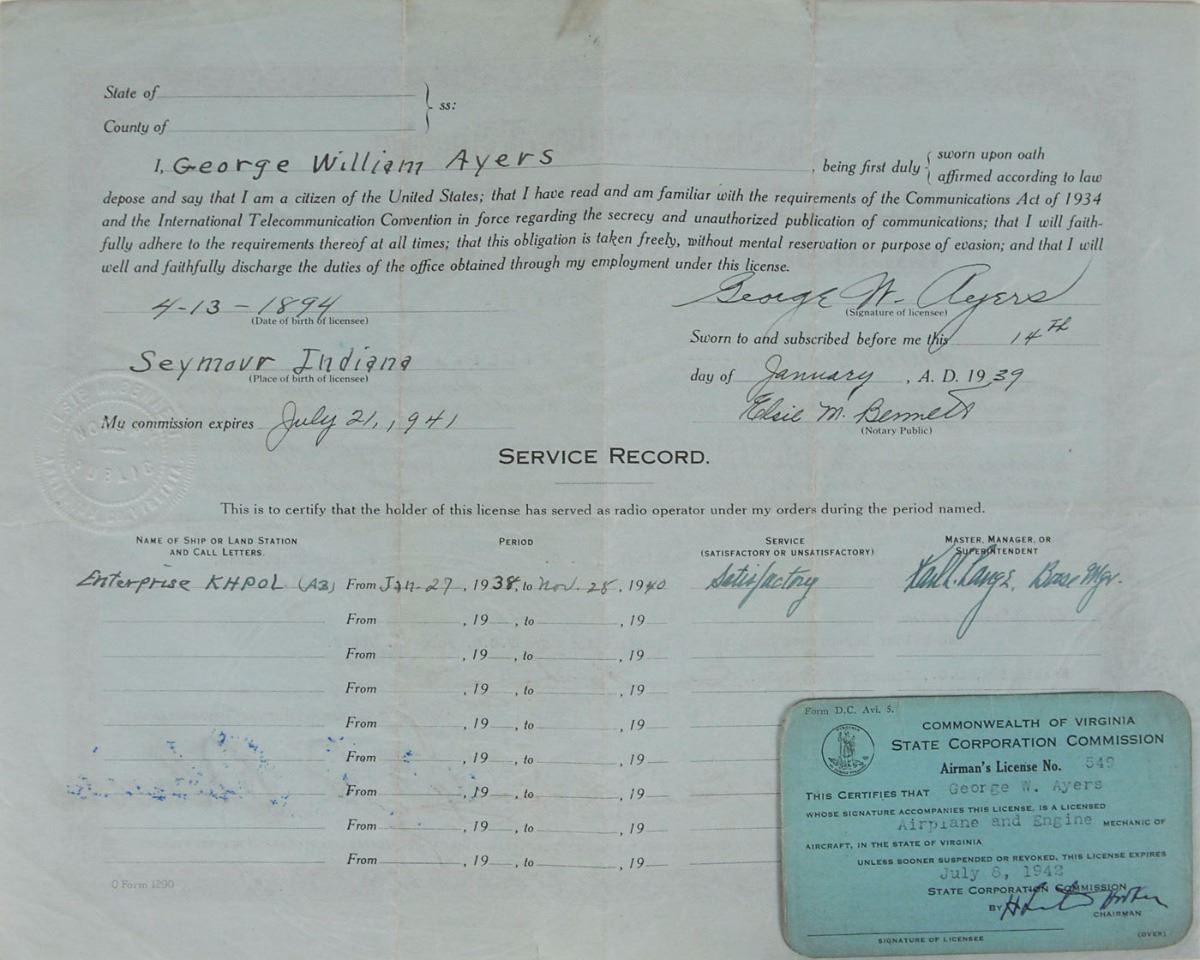 State of
County of
ss:
I, George William Ayers, being first duly { sworn upon oath
affirmed according to law
depose and say that I am a citizen of the United States; that I have read and am familiar with the requirements of the Communications Act of 1934
and the International Telecommunication Convention in force regarding the secrecy and unauthorized publication of communications; that I will faith-
fully adhere to the requirements thereof at all times; that this obligation is taken freely, without mental reservation or purpose of evasion; and that I will
well and faithfully discharge the duties of the office obtained through my employment under this license.
4-13-1894
(Date of birth of licensee)
George W. Ayers
(Signature of licensee)
Sworn to and subscribed before me this 14th
Seymour Indiana
(Place of birth of licensee)
day of January, A. D. 1939
My commission expires July 21, 1941
Elsie M. Bennett
(Notary Public)
NOTARY
PUBLIC
SERVICE RECORD.
This is to certify that the holder of this license has served as radio operator under my orders during the period named.
NAME OF SHIP OR LAND STATION
AND CALL LETTERS.
PERIOD
SERVICE
(SATISFACTORY OR UNSATISFACTORY)
MASTER, MANAGER, OR
SUPERINTENDENT
Enterprise KHPOL (A3) From Jan-27, 1938, to Nov. 28, 1940 Satisfactory Base Mgr.
From , 19 , to , 19
From , 19 , to , 19
From , 19 , to , 19
From , 19 , to , 19
From , 19 , to , 19
From , 19 , to , 19
From , 19 , to , 19
From , 19 , to , 19
O Form 1290
Form D.C. Avi. 5.
COMMONWEALTH OF VIRGINIA
STATE CORPORATION COMMISSION
Airman's License No. 549
THIS CERTIFIES THAT George W. Ayers
WHOSE SIGNATURE ACCOMPANIES THIS LICENSE, IS A LICENSED
Airplane and Engine MECHANIC OF
AIRCRAFT, IN THE STATE OF VIRGINIA
UNLESS SOONER SUSPENDED OR REVOKED, THIS LICENSE EXPIRES
July 8, 1942
STATE CORPORATION COMMISSION
BY
CHAIRMAN
SIGNATURE OF LICENSEE
(OVER)